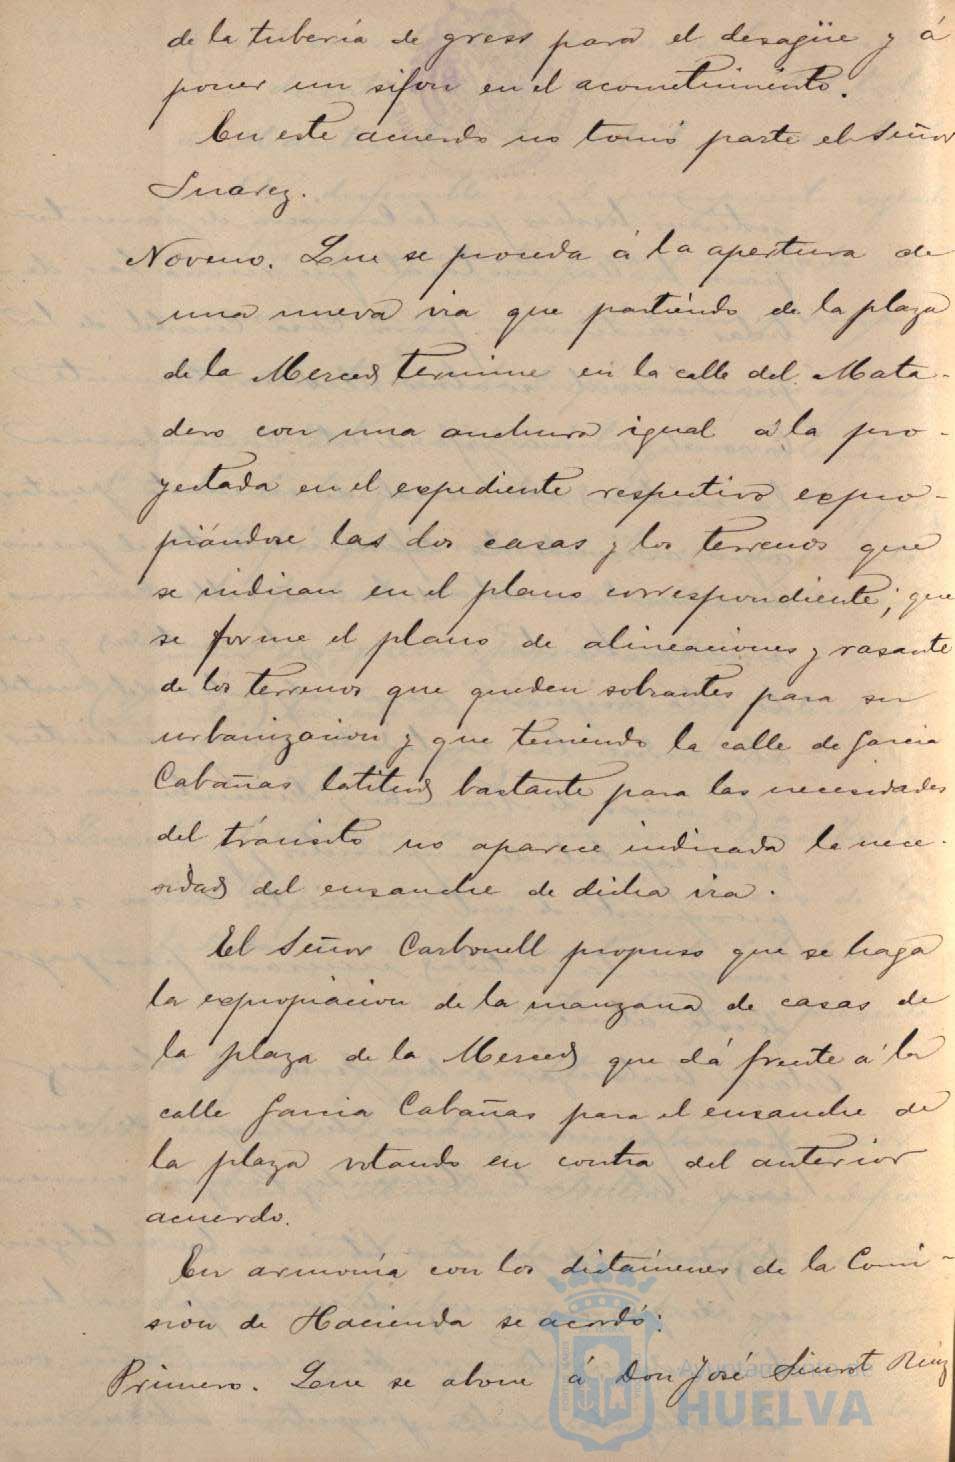 de la tuberia de gress para el desagüe y á
poner un sifon en el acometimiento.
En este acuerdo no tomó parte el Señor
Suarez.
Noveno. Que se proceda á la apertura de
una nueva via que partiendo de la plaza
de la Merced termine en la calle del Mata-
dero con una anchura igual á la pro-
yectada en el expediente respectivo expro-
piándose las dos casas y los terrenos que
se indican en el plano correspondiente; que
se forme el plano de alineaciones y rasante
de los terrenos que queden sobrantes para su
urbanizacion y que teniendo la calle de Garcia
Cabañas latitud bastante para las necesidades
del tránsito no aparece indicada la nece-
sidad del ensanche de dicha via.
El Señor Carbonell propuso que se haga
la expropiacion de la manzana de casas de
la plaza de la Merced que dá frente á la
calle Garcia Cabañas para el ensanche de
la plaza votando en contra del anterior
acuerdo.
En armonía con los dictámenes de la Comi-
sion de Hacienda se acordó:
Primero. Que se abone á Don José Siurot Ruiz
Ayuntamiento de
HUELVA